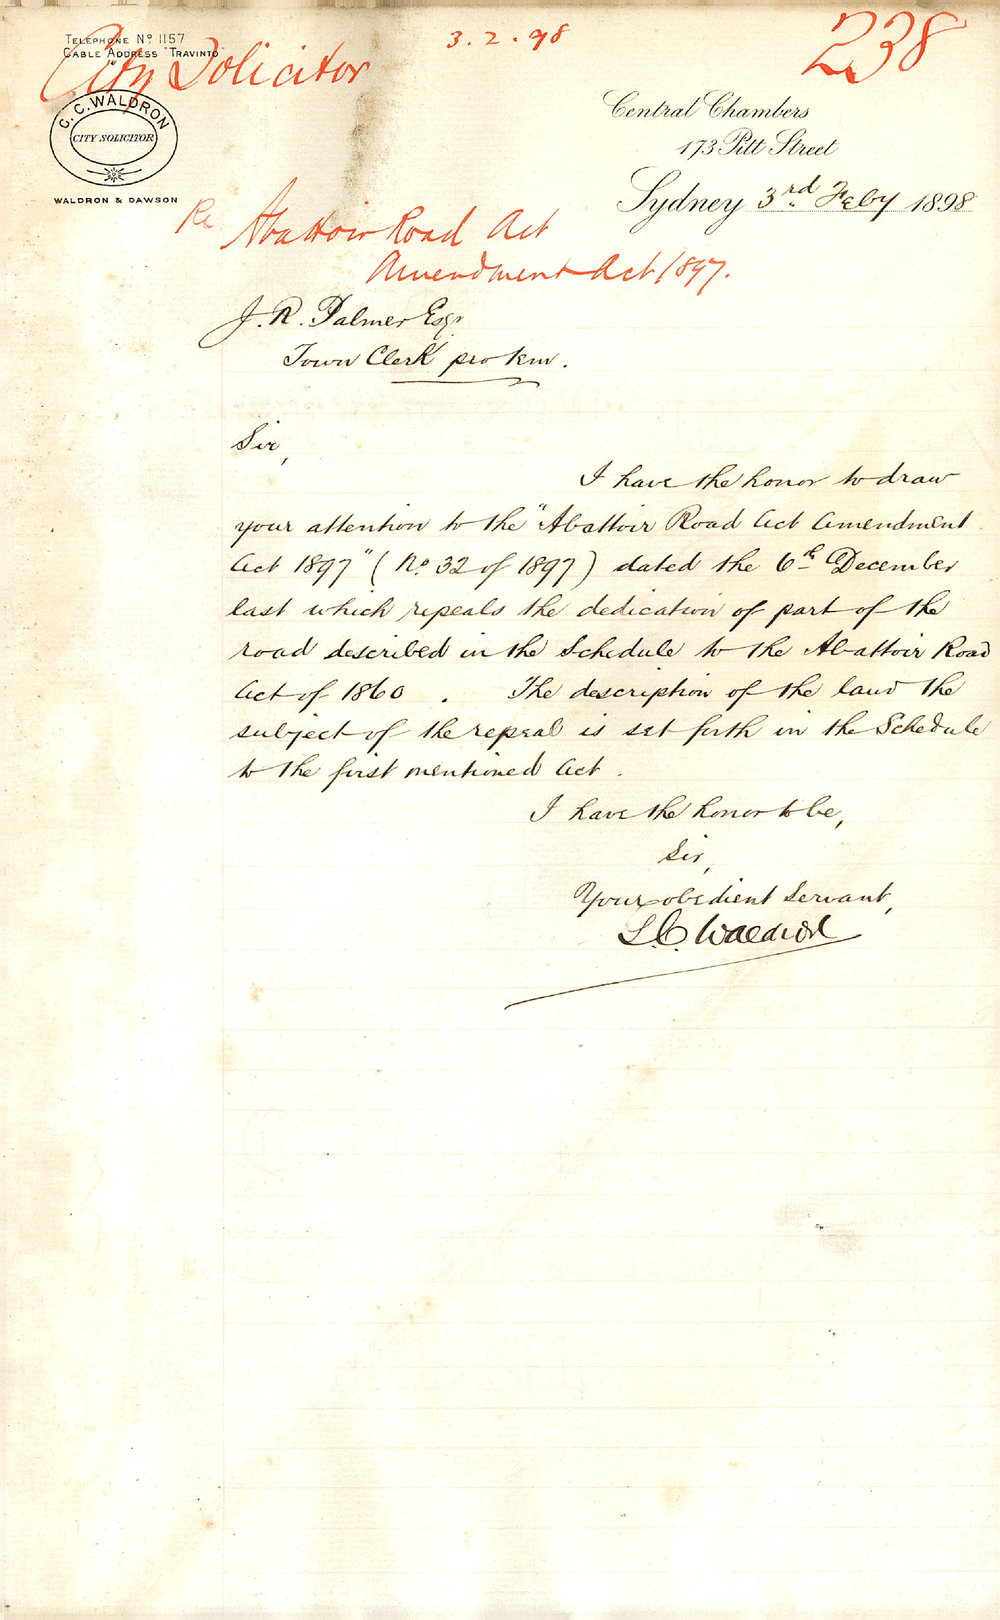 Telephone No 1157
Cable Address "Travinto"
City Solicitor
3.2.98
238
C.C. WALDRON
CITY SOLICITOR
WALDRON & DAWSON
Central Chambers
173 Pitt Street
Sydney 3rd Feby 1898
Re Abattoir Road Act
Amendment Act 1897.
J. R. Palmer Esqr
Town Clerk pro tem.
Sir,
I have the honor to draw
your attention to the "Abattoir Road Act Amendment
Act 1897" (No. 32 of 1897) dated the 6th December
last which repeals the dedication of part of the
road described in the Schedule to the Abattoir Road
Act of 1860. The description of the land the
subject of the repeal is set forth in the Schedule
to the first mentioned Act.
I have the honor to be,
Sir,
Your obedient Servant,
C.C. Waldron